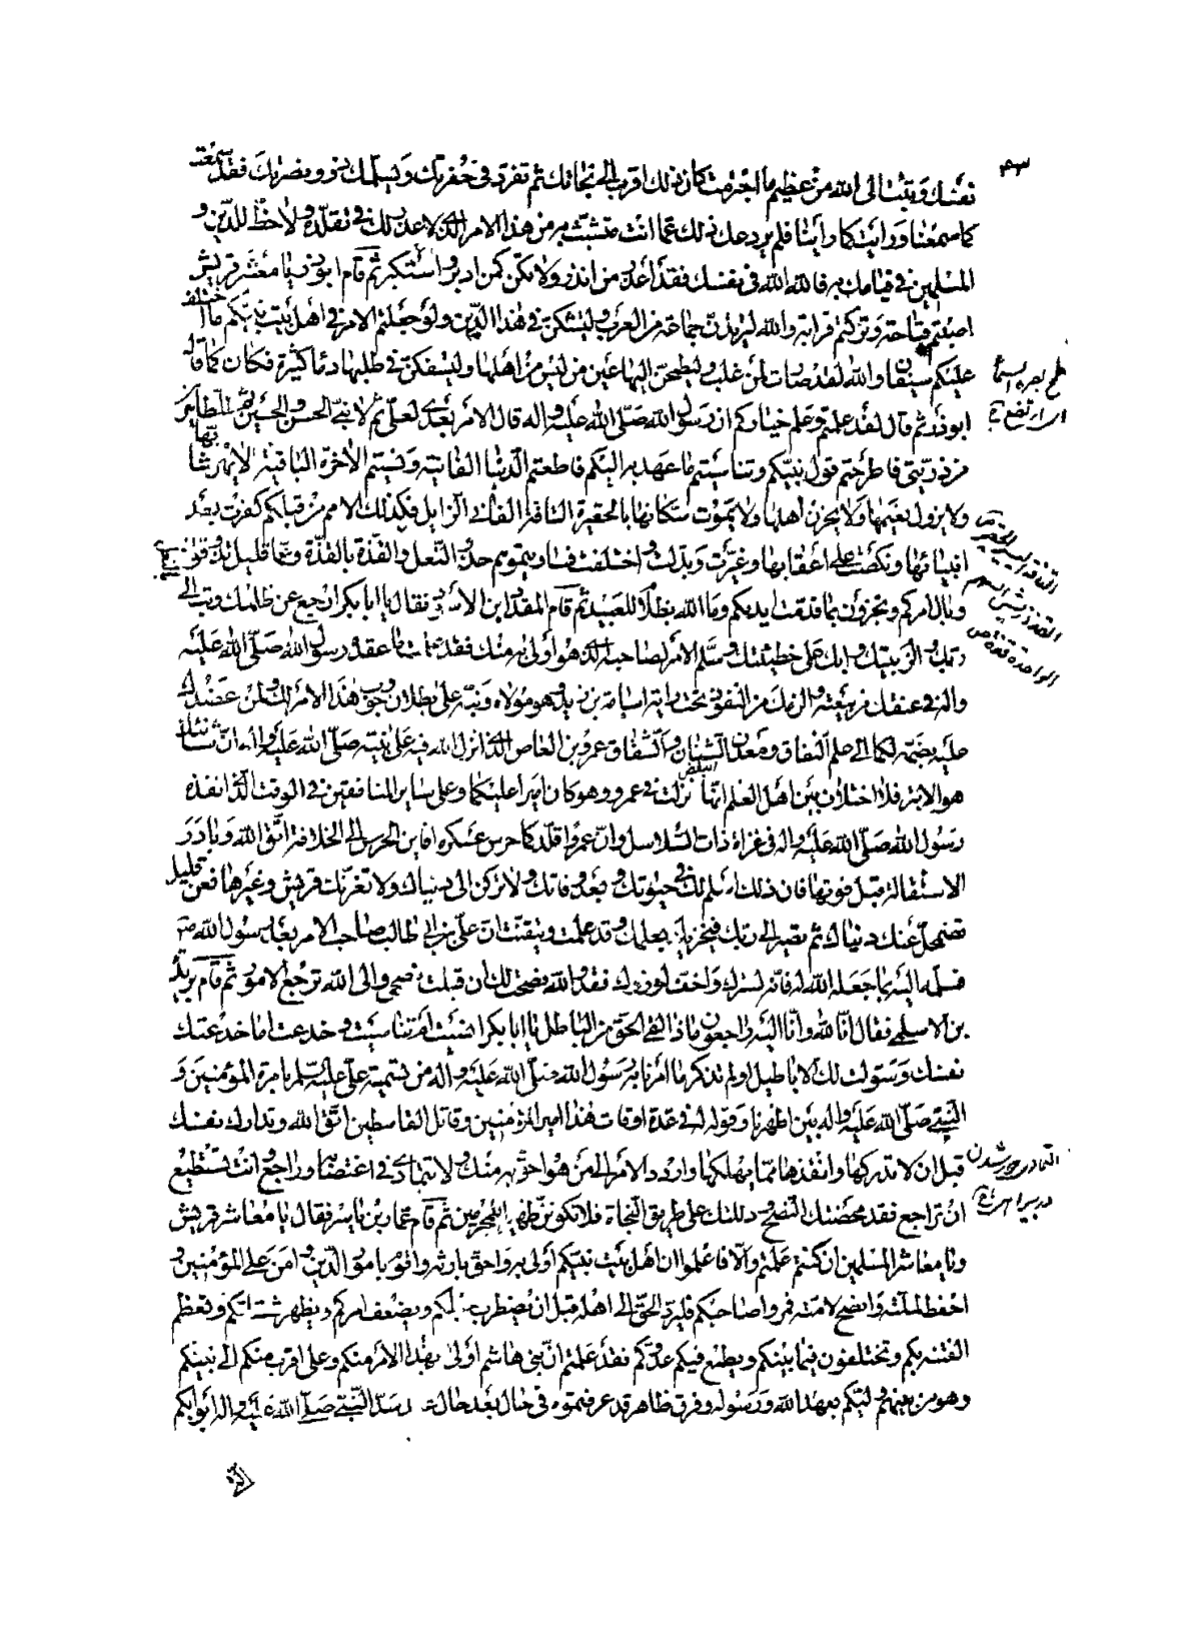 ٤٣
نفسك وتبت الى الله من عظيم ما اجترمت كان ذلك اقرب الى نجاتك ثم تفرد في حفرتك ويسلمك ذوو نصرتك فقد سمعت
كما سمعنا ورايت كما راينا فلم يردعك ذلك عما انت متشبث به من هذا الامر الذي لا عذر لك في تقلده ولا حظ للدين و
المسلمين في قيامك به فالله الله في نفسك فقد اعذر من انذر ولا تكن كمن ادبر واستكبر ثم قام ابوذر يا معشر قريش
اصبتم قباحة وتركتم قرابة والله ليرتدن جماعة من العرب وليشكن في هذا الدين ولو جعلتم الامر في اهل بيت نبيكم ما اختلف
عليكم سيفان والله لقد صارت لمن غلب ولتطمحن اليها عين من ليس من اهلها وليسفكن في طلبها دماء كثيرة فكان كما قال
ابوذر ثم قال لقد علمتم وعلم خياركم ان رسول الله صلى الله عليه واله قال الامر بعدي لعلي ثم لابني الحسن والحسين ثم للطاهرين
من ذريتي فاطرحتم قول نبيكم وتناسيتم ما عهد به اليكم فاطعتم الدنيا الفانية ونسيتم الاخرة الباقية لا يهرم شابها
ولا يزول نعيمها ولا يحزن اهلها ولا يموت سكانها بالحقير التافه الفاني الزايل فكذلك الامم من قبلكم كفرت بعد
انبيائها ونكصت على اعقابها وغيرت وبدلت واختلفت فساويتموهم حذو النعل بالنعل والقذة بالقذة وعما قليل تذوقون
وبال امركم وتجزون بما قدمت ايديكم وما الله بظلام للعبيد ثم قام المقداد ابن الاسود فقال يا ابا بكر ارجع عن ظلمك وتب الى
ربك والزم بيتك وابك على خطيئتك وسلم الامر لصاحبه الذي هو اولى به منك فقد علمت ما عقده رسول الله صلى الله عليه
واله في عنقك من بيعته والزمك من النفوذ تحت راية اسامة بن زيد وهو مولاه ونبه على بطلان وجوب هذا الامر لك ولمن عضدك
عليه بضمه لكما الى علم النفاق ومعدن الشنان والشقاق عمرو بن العاص الذي انزل الله فيه على نبيه صلى الله عليه واله ان شانئك
هو الابتر فلا اختلاف بين اهل العلم انها نزلت في عمرو وهو كان اميرا عليكما وعلى ساير المنافقين في الوقت الذي انفذه
رسول الله صلى الله عليه واله في غزاة ذات السلاسل وان عمروا قلدكما حرس عسكره فاين الحرس الى الخلافة اتق الله وبادر
الاستقالة قبل فوتها فان ذلك اسلم لك في حيوتك وبعد وفاتك ولا تركن الى دنياك ولا تغرنك قريش وغيرها فعن قليل
تضمحل عنك دنياك ثم تصير الى ربك فيجزيك بعملك وقد علمت وتيقنت ان علي بن ابي طالب صاحب الامر بعد رسول الله ص
فسلمه اليه بما جعله الله له فانه لسترك واخف لوزرك فقد والله نصحت لك ان قبلت نصحي والى الله ترجع الامور ثم قام بريدة
بن الاسلمي فقال انا لله وانا اليه راجعون ماذا لقي الحق من الباطل يا ابا بكر انسيت ام تناسيت وخدعت ام خدعتك
نفسك وسولت لك الاباطيل اولم تذكر ما امرنا به رسول الله صلى الله عليه واله من تسمية علي عليه السلم بامرة المؤمنين و
النبي صلى الله عليه واله بين اظهرنا وقوله له في عدة اوقات هذا امير المؤمنين وقاتل القاسطين اتق الله وتدارك نفسك
قبل ان لا تدركها وانقذها مما يهلكها واردد الامر الى من هو احق به منك ولا تتماد في اغتصابه وراجع وانت تستطيع
ان تراجع فقد محضتك النصح ودللتك على طريق النجاة فلا تكونن ظهيرا للمجرمين ثم قام عمار بن ياسر فقال يا معاشر قريش
ويا معاشر المسلمين ان كنتم علمتم والا فاعلموا ان اهل بيت نبيكم اولى به واحق بارثه واقوم بامور الدين وامن على المؤمنين و
احفظ لملته وانصح لامته فمروا صاحبكم فليرد الحق الى اهله قبل ان يضطرب حبلكم ويضعف امركم ويظهر شتاتكم وتعظم
الفتنة بكم وتختلفون فيما بينكم ويطمع فيكم عدوكم فقد علمتم ان بني هاشم اولى بهذا الامر منكم وعلي اقرب منكم الى نبيكم
وهو من بينهم وليكم بعهد الله ورسوله وفرق ظاهر قد عرفتموه في حال بعد حال عند سد النبي صلى الله عليه واله ابوابكم